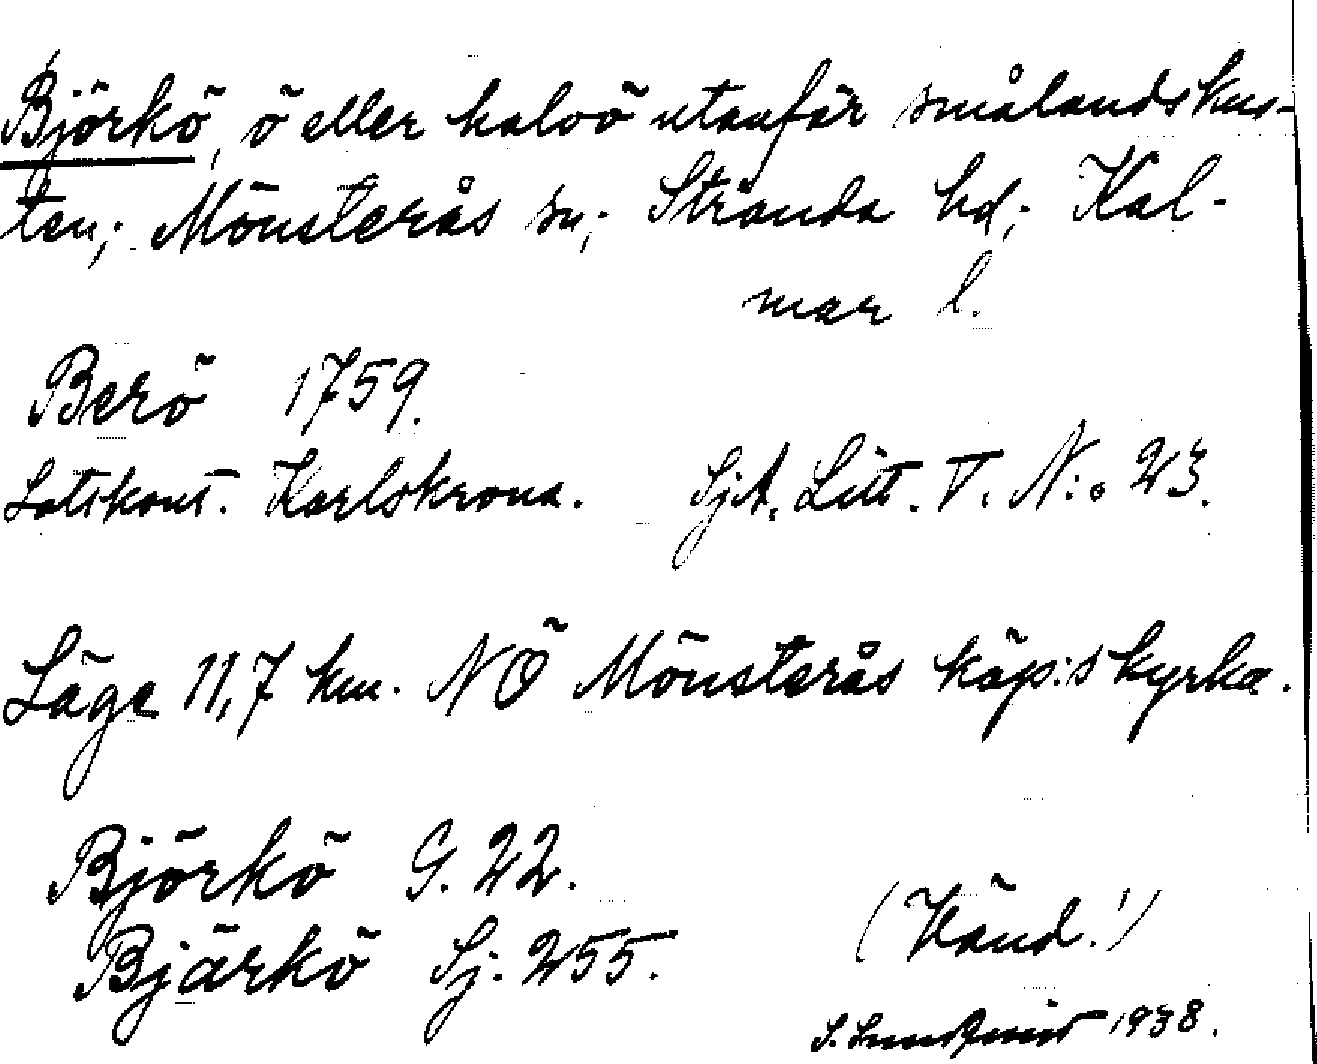 Björkö, ö eller halvö utanför smålandskus-
ten; Mönsterås sn; Stranda hd; Kal-
mar l.
Berö 1759.
Lotskont. Karlskrona. SjA. Litt. V. N:o 23.
Läge 11,7 km. NÖ Mönsterås köp:s kyrka.
Björkö G. 22.
Bjärkö Sj. 255.
(Vänd!)
S. 1938.